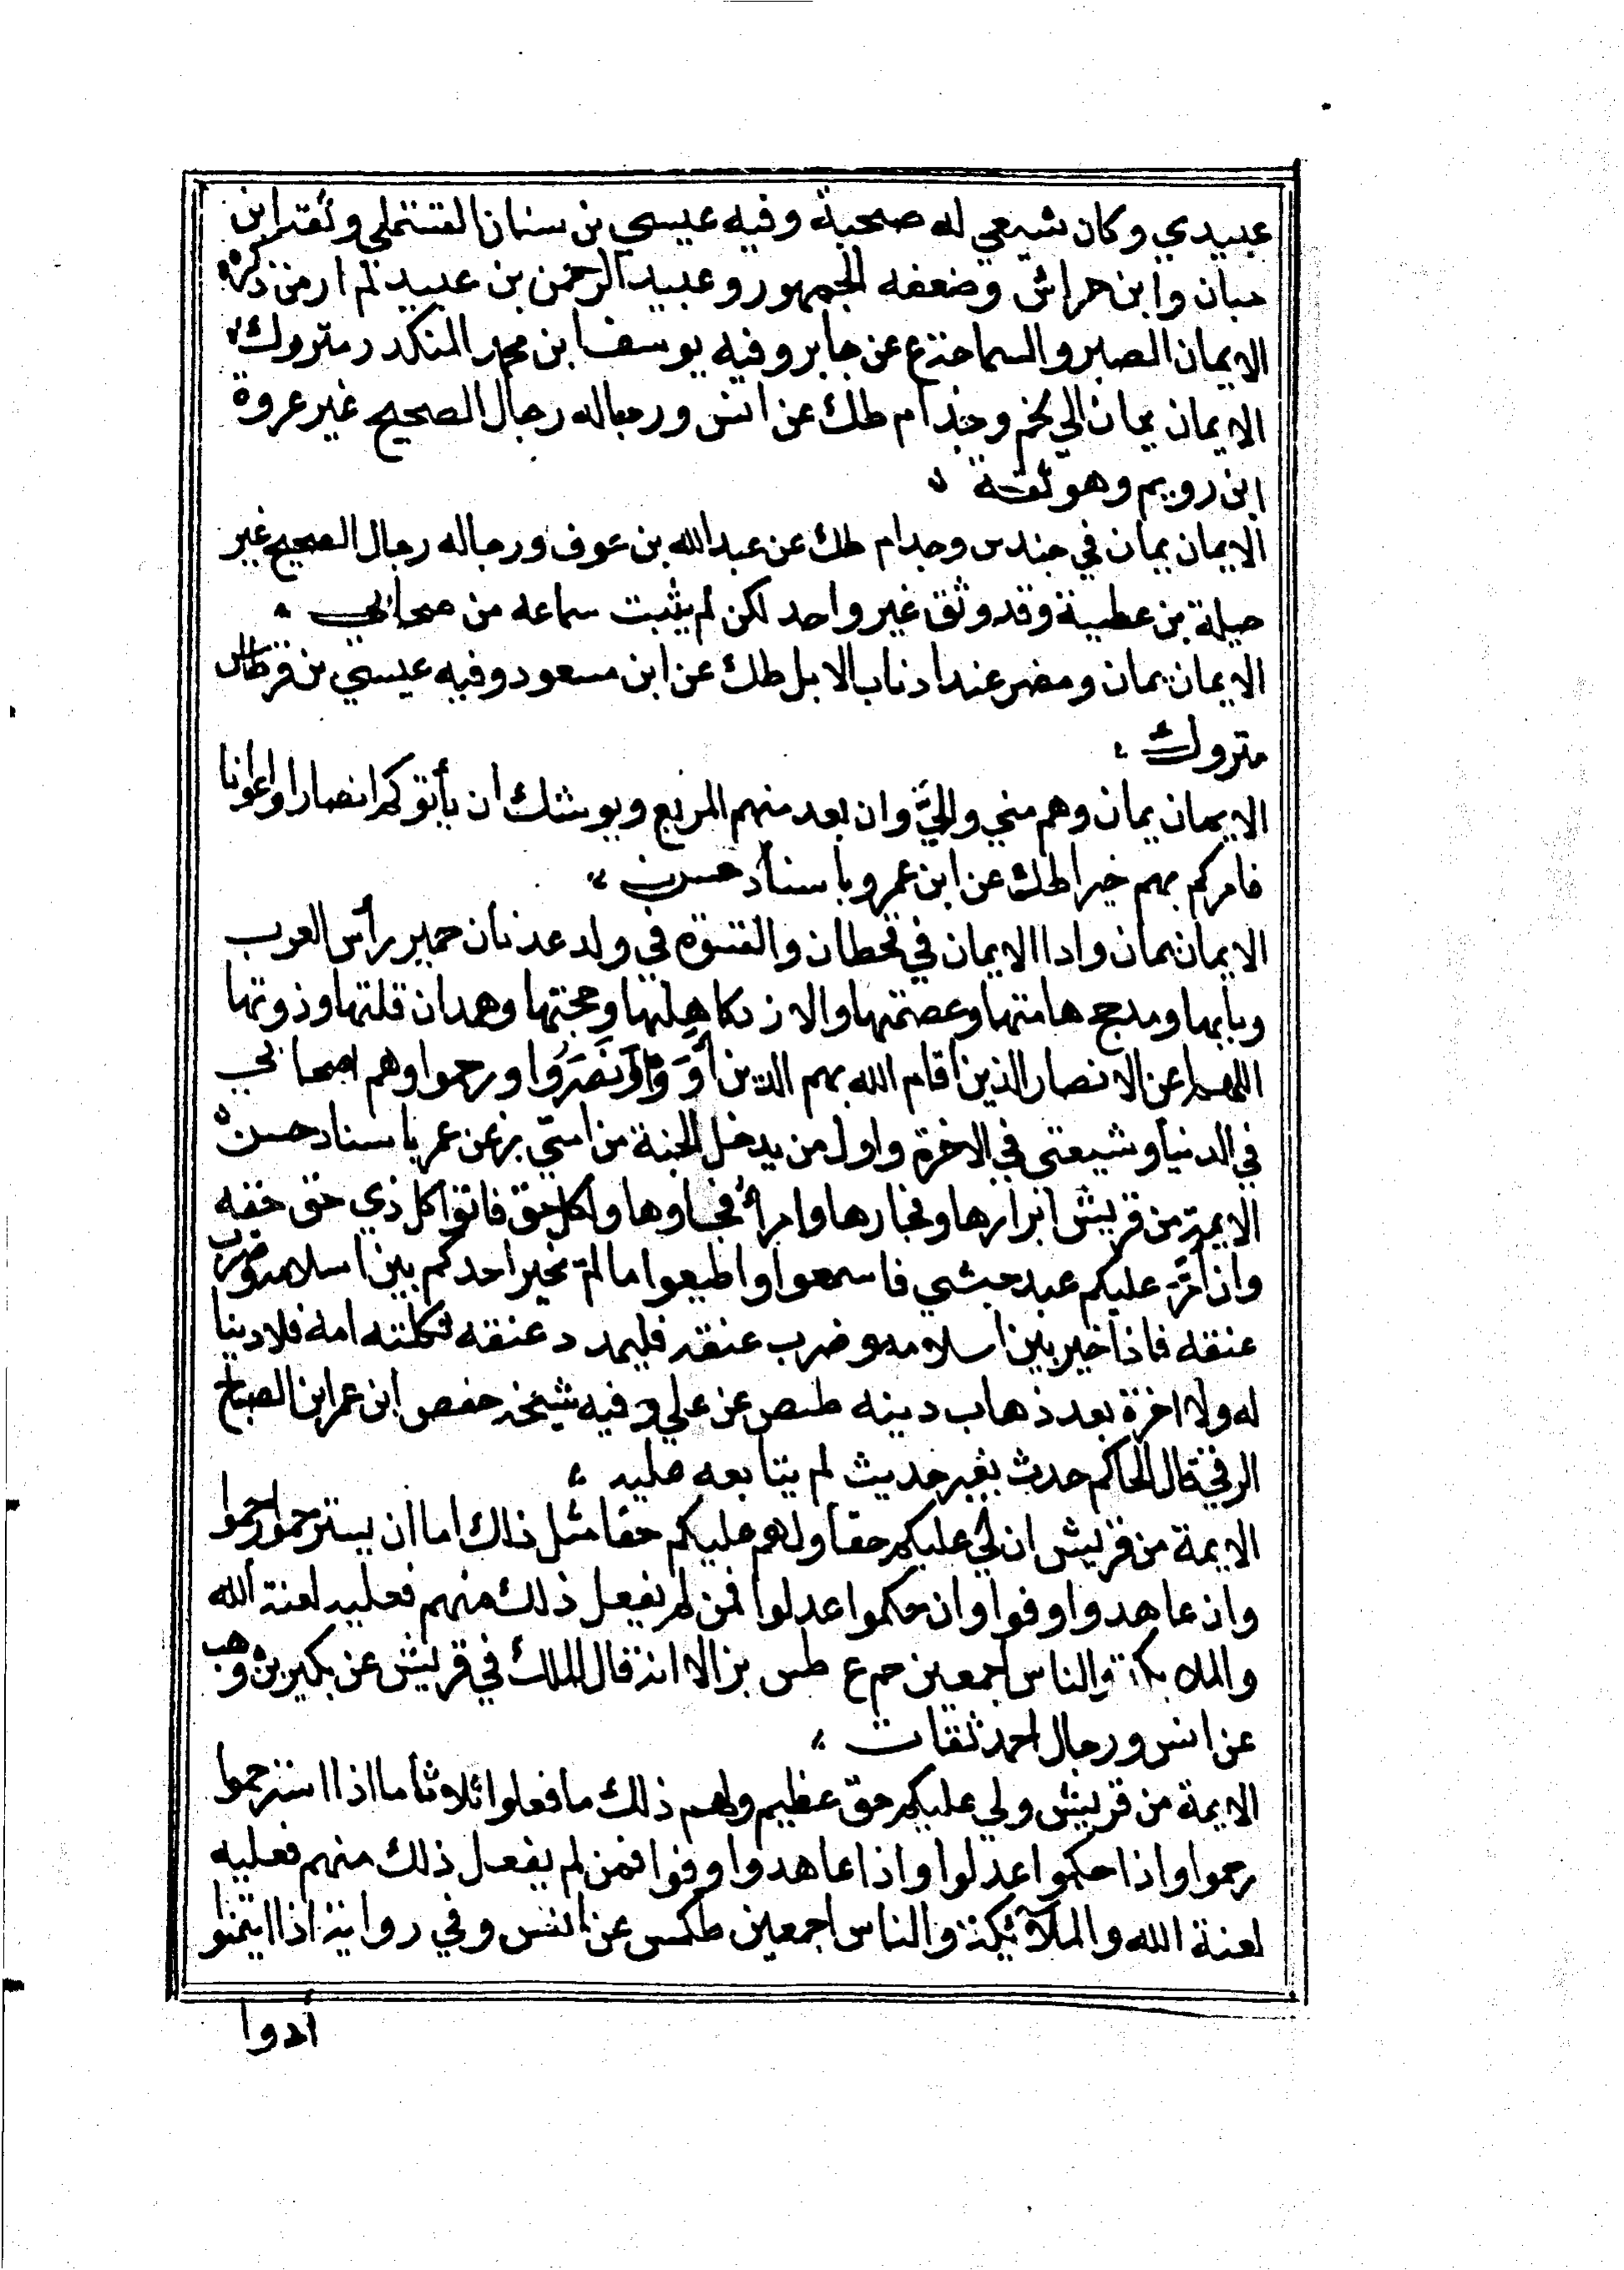 عبيدي وكان شيعي له صحبة وفيه عيسي بن سنان القستملي وثقه ابن
حبان وابن حراش وضعفه الجمهور وعبيد الرحمن بن عبيد لم ار من ذكره
الايمان الصبر والسماحة ع عن جابر وفيه يوسف ابن محمد المنكدر متروك
الايمان يمان الي لخم وجذام طك عن انس ورجاله رجال الصحيح غير عروة
ابن رويم وهو ثقة
الايمان يمان في جندس وجدام طك عن عبد الله بن عوف ورجاله رجال الصحيح غير
جبلة بن عطية وقد وثق غير واحد لكن لم يثبت سماعه من صحابي
الايمان يمان ومضر عند اذناب الابل طك عن ابن مسعود وفيه عيسي بن قرطاس
متروك
الايمان يمان وهم مني واليّ وان بعد منهم المربع ويوشك ان يأتوكم انصارا واعوانا
فامركم بهم خيرا طك عن ابن عمرو باسناد حسن
الايمان يمان وادا الايمان في قحطان والقسوة في ولد عدنان حمير رأس العرب
ونابها ومدجج هامتها وعصمتها والازد كاهلها وجمجتها وهمدان قلتها وذوتها
اللهم اعز الانصار الذين اقام الله بهم الدين أوَوْا وَنَصَرُوا ورحموا وهم اصحابي
في الدنيا وشيعتي في الاخرة واول من يدخل الجنة من امتي بز عن عمر باسناد حسن
الايمة من قريش ابرارها وفجارها وامراء فجاوها ولكل حق فاتوا كل ذي حق حقه
وان أمّر عليكم عبد حبشي فاسمعوا واطيعوا ما لم يخير احدكم بين اسلامه وضرب
عنقه فاذا خير بين اسلامه وضرب عنقه فليمدد عنقه ثكلته امه فلا دينا
له ولا اخرة بعد ذهاب دينه طسص عن علي وفيه شيخه حفص ابن عمر ابن الصباح
الرقي قال الحاكم حدث بغير حديث لم يتابعه عليه
الايمة من قريش ان لي عليكم حقا ولهم عليكم حقا مثل ذلك اما ان يسترحموا رحموا
وان عاهدوا وفوا وان حكموا عدلوا فمن لم يفعل ذلك منهم فعليه لعنة الله
والملايكة والناس اجمعين حم ع طس بز الا انه قال الملك في قريش عن بكير بن وهب
عن انس ورجال احمد ثقات
الايمة من قريش ولي عليكم حق عظيم ولهم ذلك ما فعلوا ثلاثا ما اذا استرحموا
رحموا واذا حكموا عدلوا واذا عاهدوا وفوا فمن لم يفعل ذلك منهم فعليه
لعنة الله والملآئيكة والناس اجمعين طكس عن انس وفي رواية اذا ايتمنوا
أدوا